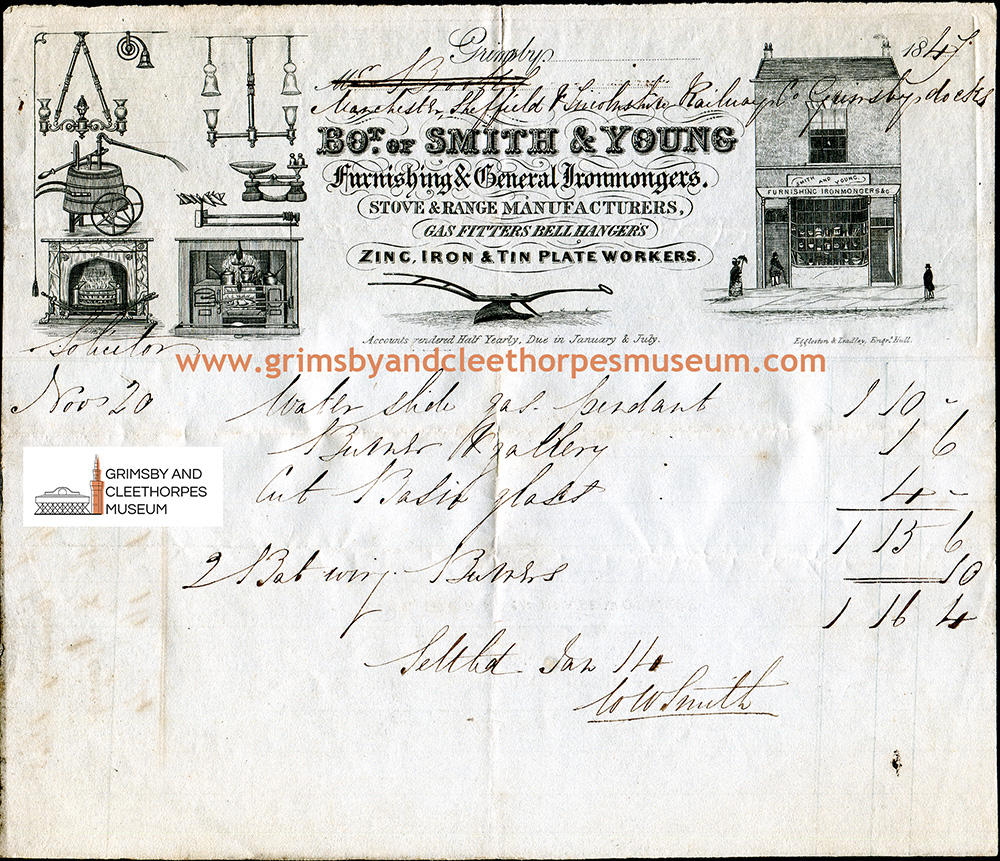 Grimsby 184
Manchester, Sheffield & Lincolnshire Railway Co Grimsby docks
BOT. OF SMITH & YOUNG
Furnishing & General Ironmongers.
STOVE & RANGE MANUFACTURERS,
GAS FITTERS BELLHANGERS
ZINC, IRON & TIN PLATE WORKERS.
SMITH AND YOUNG.
FURNISHING IRONMONGERS &c.
Accounts rendered Half Yearly, Due in January & July.
Eggleston & Leadley, Engrs. Hull.
Solicitor
www.grimsbyandcleethorpesmuseum.com
Novr 20 Water slide gas pendant 1 10 -
Burner & gallery 1 6
Cut Basin glass 4 -
1 15 6
2 Bat wing Burners 10
1 16 4
Settled Jan 14
W W Smith
GRIMSBY AND
CLEETHORPES
MUSEUM